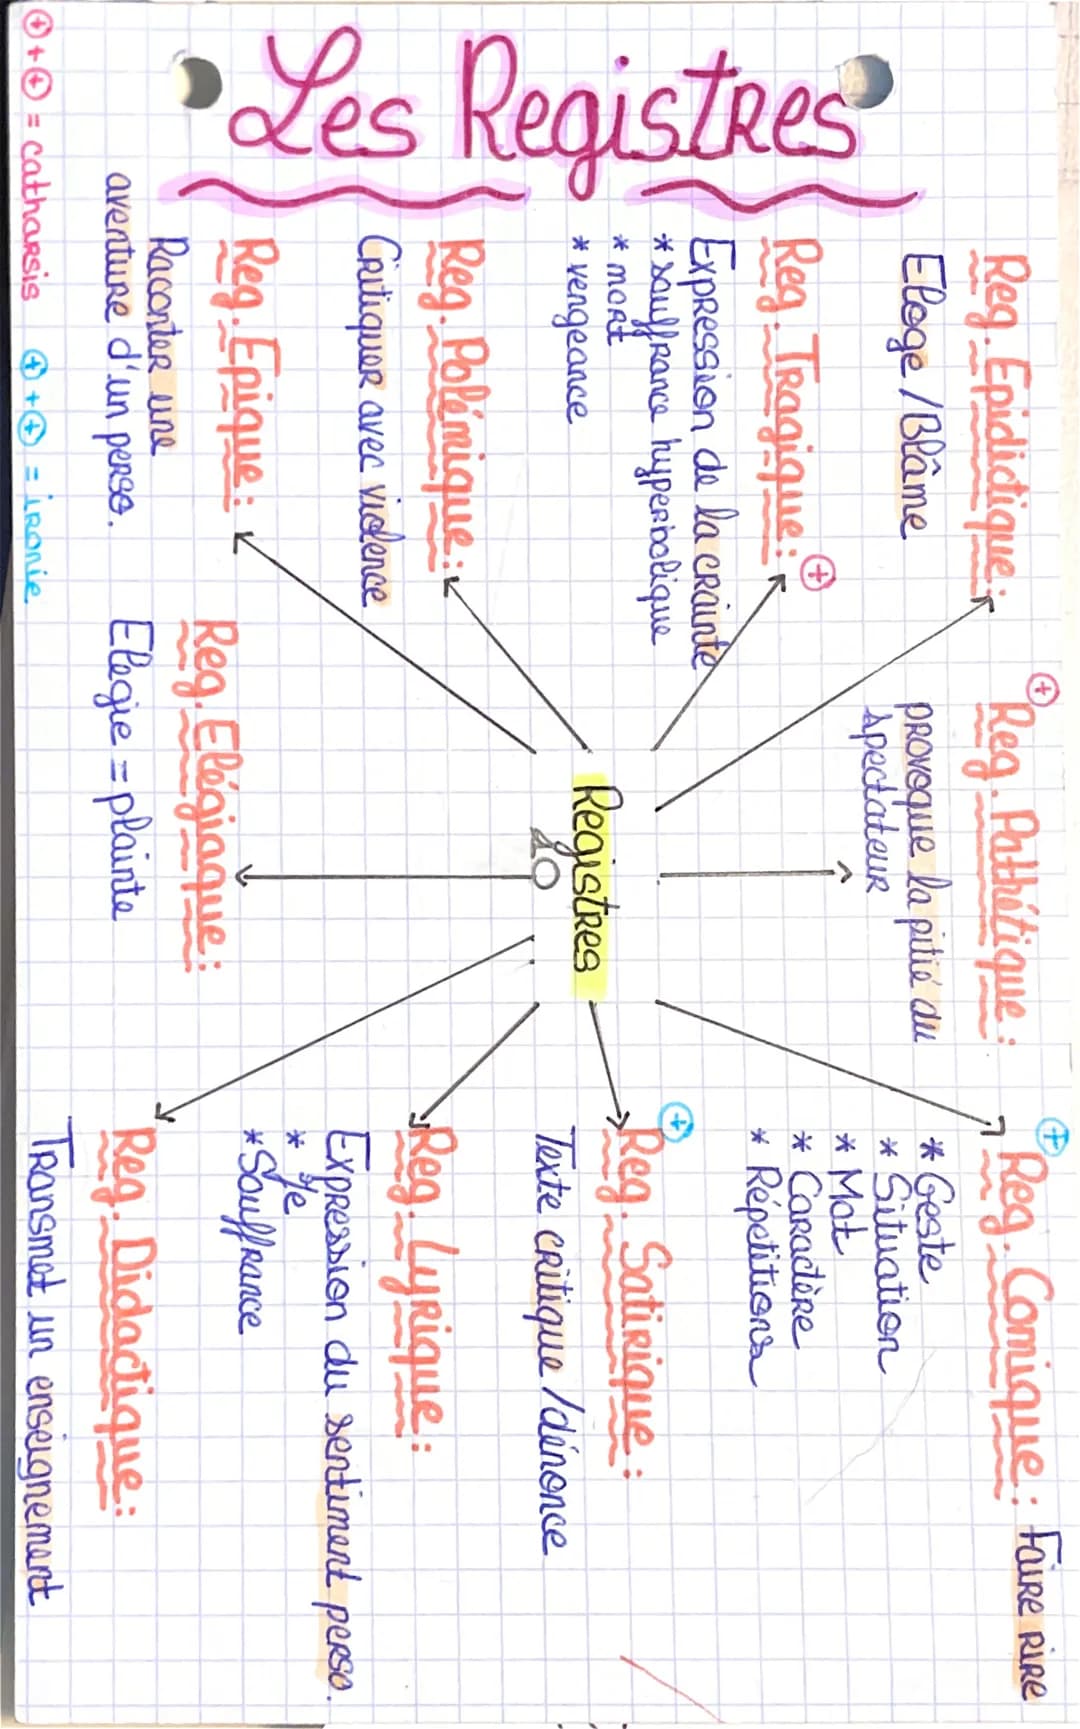 Les Registres
Reg. Epidictique :
Eloge / Blâme
Reg. Pathétique :
provoque la pitié du
spectateur
Reg. Comique : Faire rire
* Geste
* Situation
* Mot
* Caractère
* Répétitions
Reg. Tragique :
Expression de la crainte
* souffrance hyperbolique
* mort
* vengeance
Registres
10
Reg. Satirique :
Texte critique / dénonce
Reg. Polémique :
Critiquer avec violence
Reg. Lyrique :
Expression du sentiment perso.
* Je
* Souffrance
Reg. Epique :
Raconter une
aventure d'un perso.
Reg. Elégiaque :
Elegie = plainte
Reg. Didactique :
Transmet un enseignement
+ + + = catharsis + + + = ironie